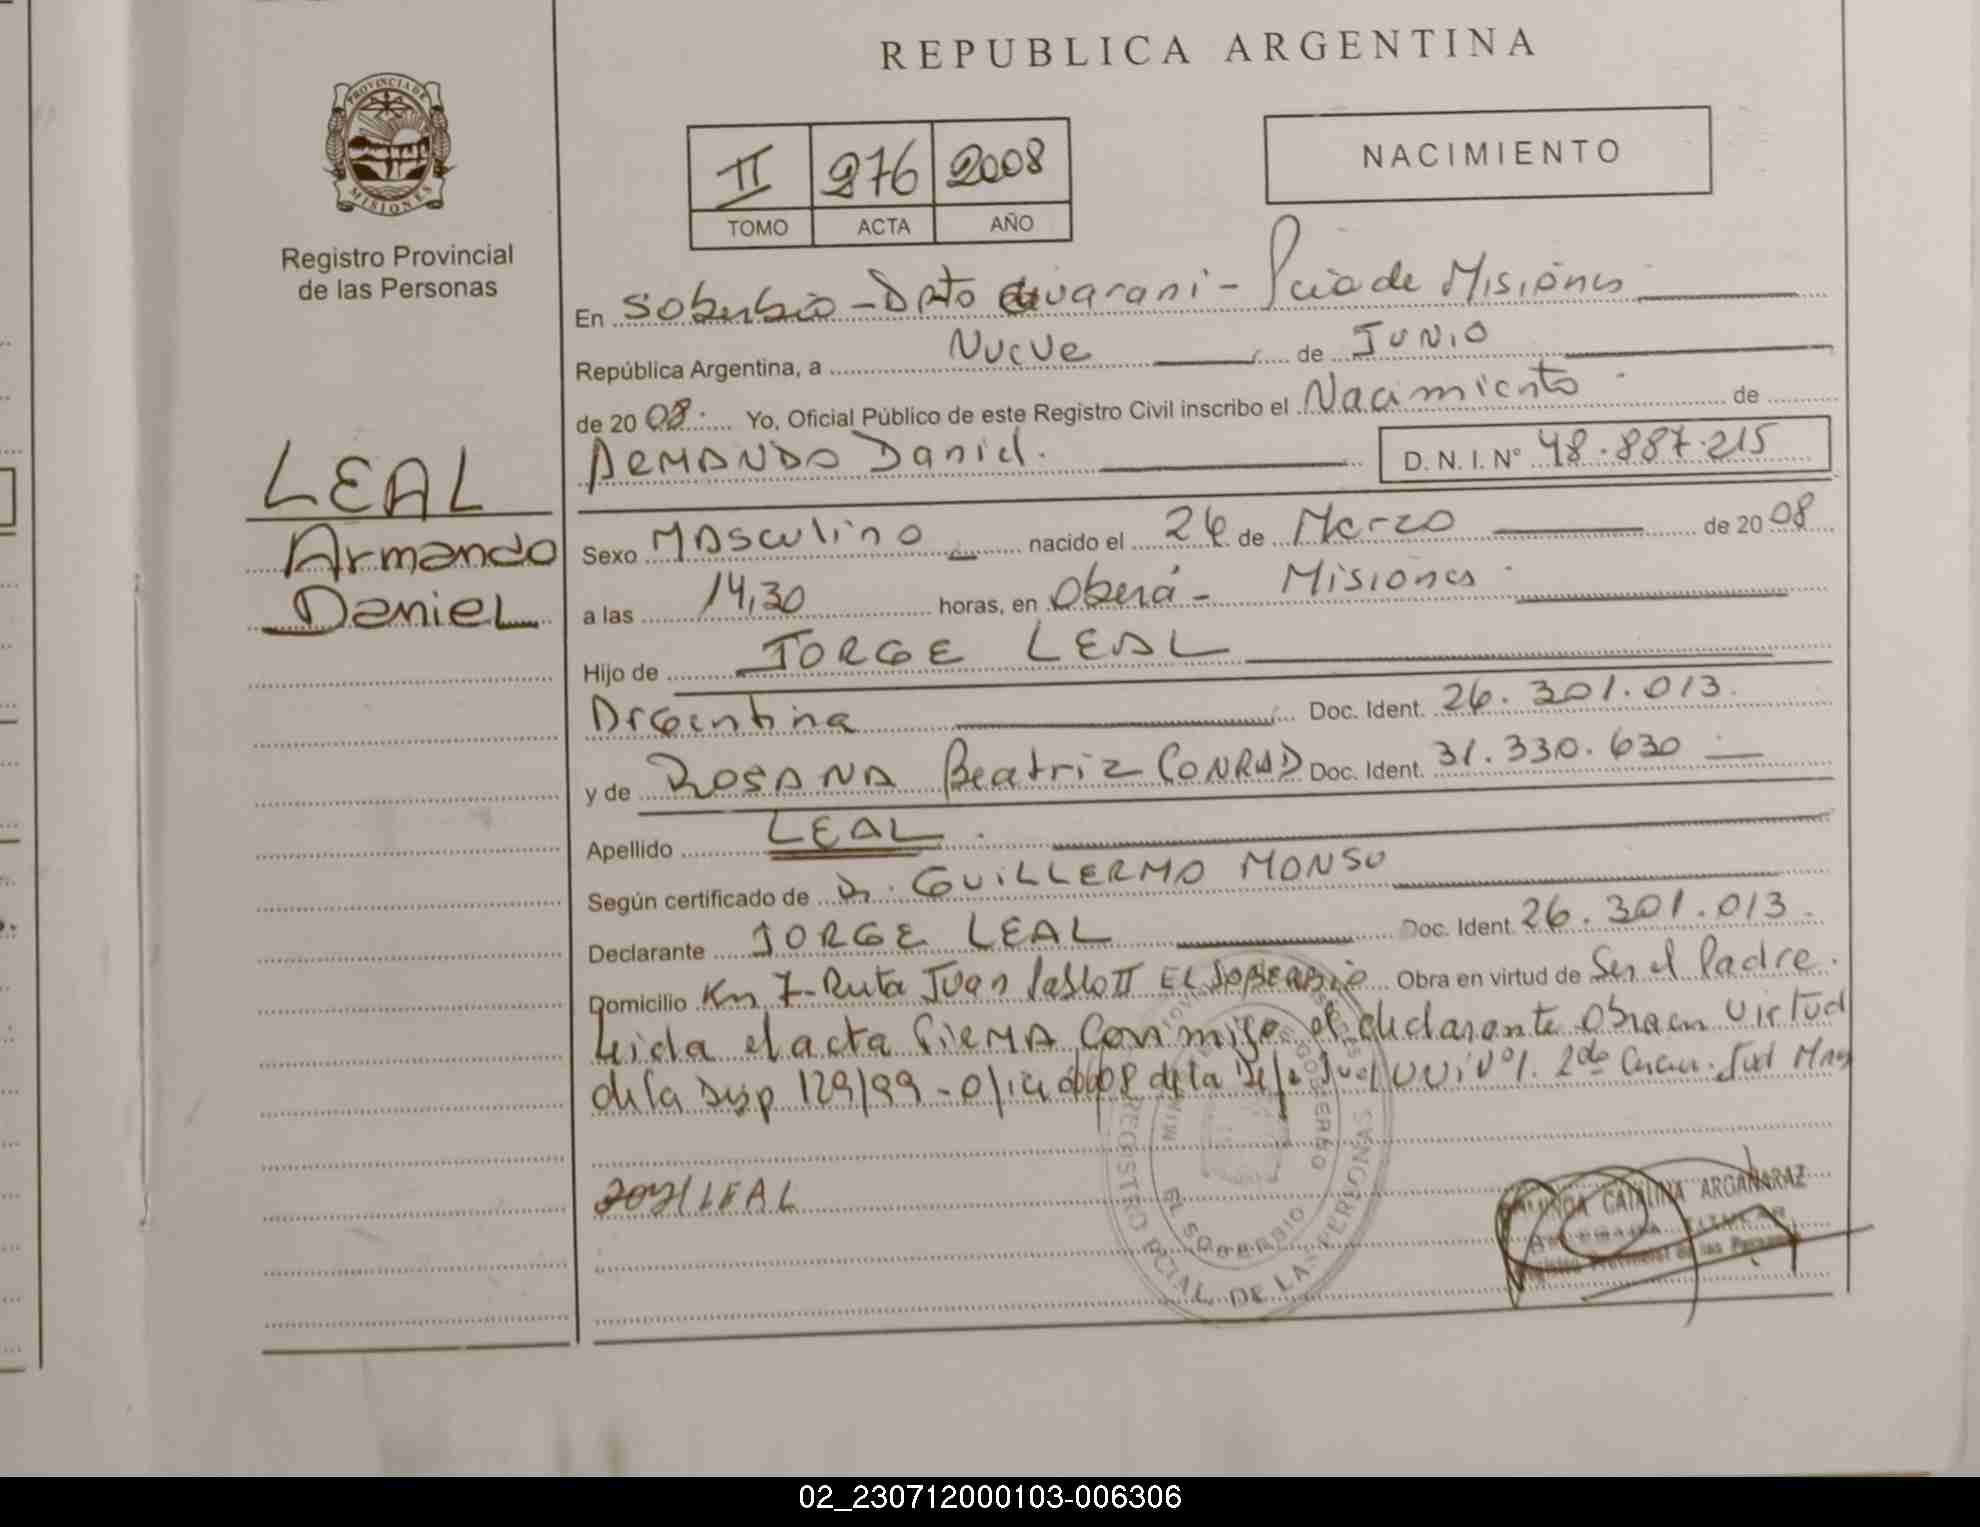 REPUBLICA ARGENTINA
PROVINCIA DE
MISIONES
Registro Provincial
de las Personas
II 276 2008
TOMO ACTA AÑO
NACIMIENTO
LEAL
Armando
Daniel
En Soberbio - Dpto Guarani - Pcia de Misiones
República Argentina, a Nueve de JUNIO
de 2008. Yo, Oficial Público de este Registro Civil inscribo el Nacimiento de
ARMANDO Daniel. D. N. I. Nº 48.887.215
Sexo MASculino nacido el 24 de Marzo de 2008
a las 14,30 horas, en Oberá - Misiones
Hijo de JORGE LEAL
Argentina Doc. Ident. 26.301.013.
y de ROSANA Beatriz CONRAD Doc. Ident. 31.330.630
Apellido LEAL.
Según certificado de Dr. GUILLERMO MONSU
Declarante JORGE LEAL Doc. Ident. 26.301.013.
Domicilio Km 7- Ruta Juan Pablo II EL SOBERBIO Obra en virtud de Ser el Padre.
Leida el acta FIRMA Conmigo el declarante Obra en Virtud
de la Disp 129/99 - de la
LEAL
REGISTRO PCIAL. DE LAS PERSONAS
EL SOBERBIO
CATALINA ARGAÑARAZ
Registro Provincial de las Personas
02_230712000103-006306